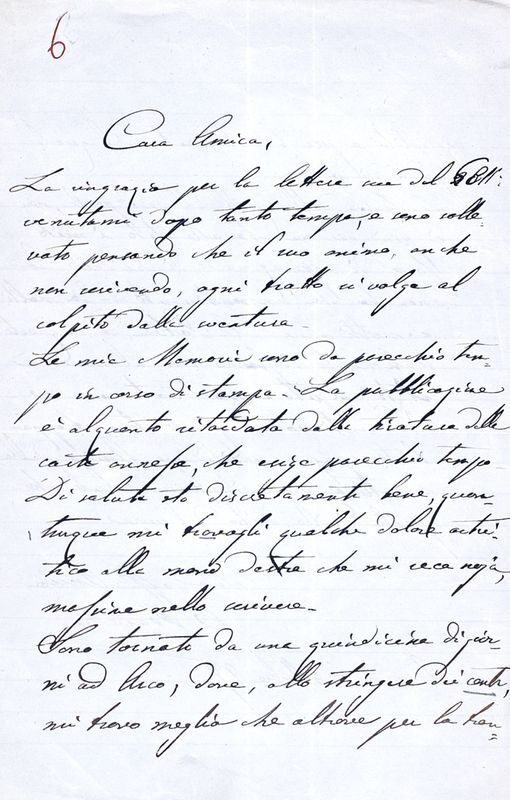 6
Cara Amica,
La ringrazio per la lettera sua del 6 8bre:
venutami dopo tanto tempo, e sono solle-
vato pensando che il suo animo, anche
non scrivendo, ogni tratto si volga al
colpito dalla sventura.
Le mie Memorie sono da parecchio tem-
po in corso di stampa. La pubblicazione
è alquanto ritardata dalla tiratura delle
carte annesse, che esige parecchio tempo.
Di salute sto discretamente bene, quan-
tunque mi travagli qualche dolore artri-
tico alla mano destra che mi reca noja,
massime nello scrivere.
Sono tornato da una quindicina di gior-
ni ad Arco, dove, allo stringere dei conti,
mi trovo meglio che altrove per la tran=